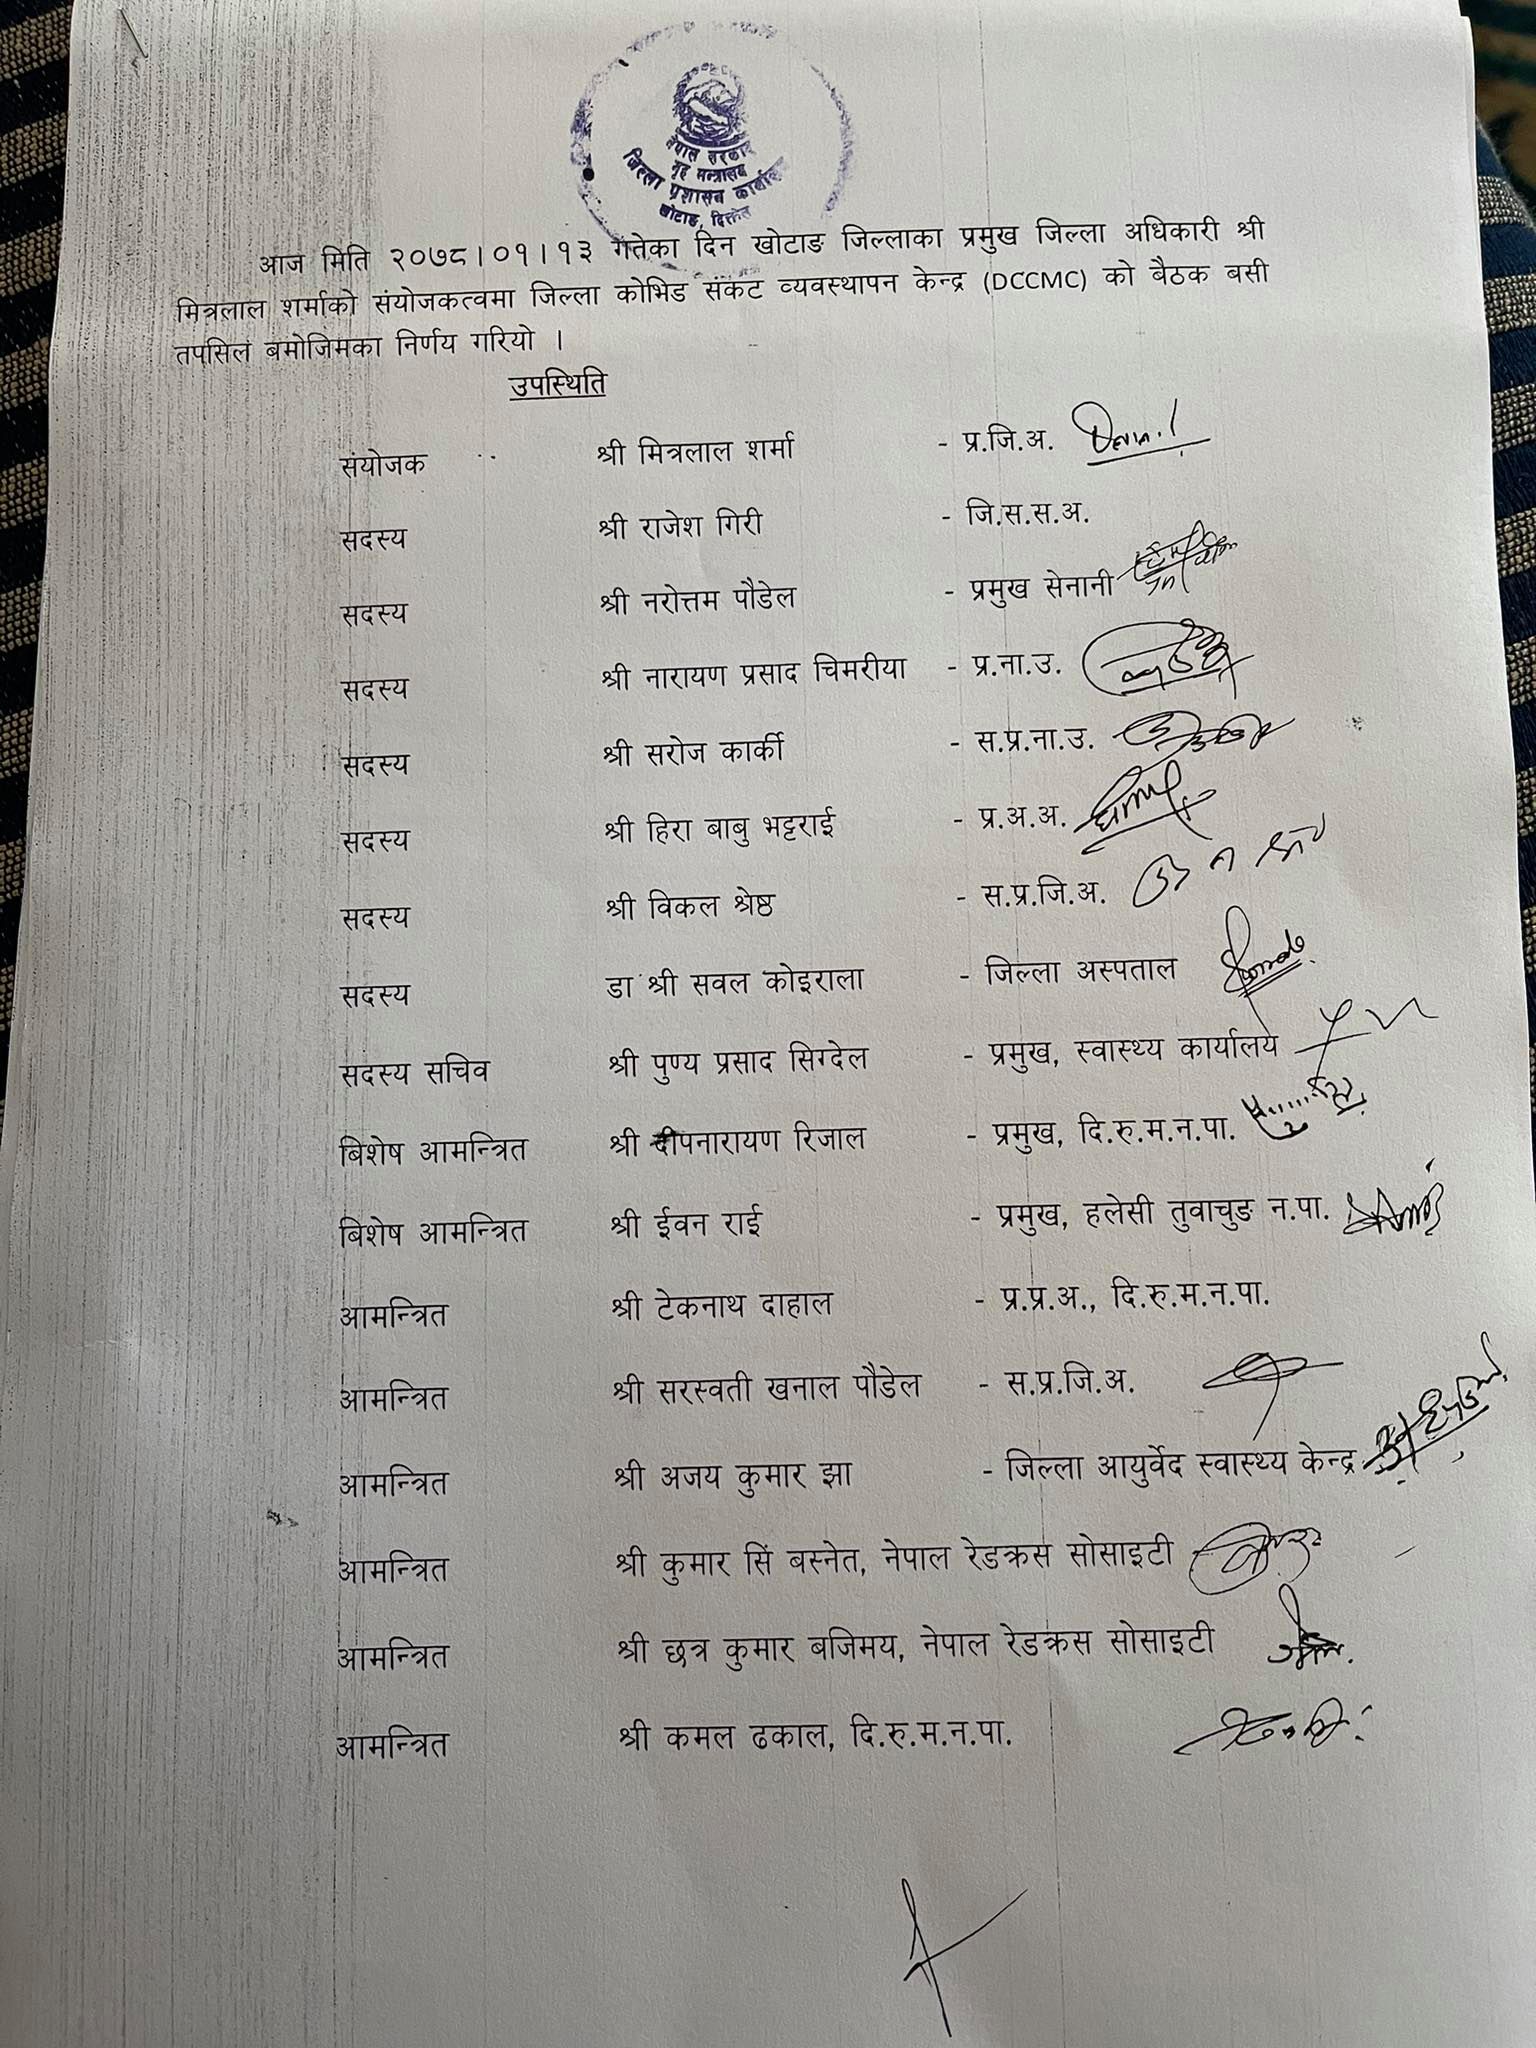 नेपाल सरकार
गृह मन्त्रालय
जिल्ला प्रशासन कार्यालय
खोटाङ, दिक्तेल
आज मिति २०७८।०१।१३ गतेका दिन खोटाङ जिल्लाका प्रमुख जिल्ला अधिकारी श्री
मित्रलाल शर्माको संयोजकत्वमा जिल्ला कोभिड संकट व्यवस्थापन केन्द्र (DCCMC) को बैठक बसी
तपसिल बमोजिमका निर्णय गरियो ।
उपस्थिति
संयोजक श्री मित्रलाल शर्मा - प्र.जि.अ.
सदस्य श्री राजेश गिरी - जि.स.स.अ.
सदस्य श्री नरोत्तम पौडेल - प्रमुख सेनानी
सदस्य श्री नारायण प्रसाद चिमरीया - प्र.ना.उ.
सदस्य श्री सरोज कार्की - स.प्र.ना.उ.
सदस्य श्री हिरा बाबु भट्टराई - प्र.अ.अ.
सदस्य श्री विकल श्रेष्ठ - स.प्र.जि.अ.
सदस्य डा श्री सवल कोइराला - जिल्ला अस्पताल
सदस्य सचिव श्री पुण्य प्रसाद सिग्देल - प्रमुख, स्वास्थ्य कार्यालय
बिशेष आमन्त्रित श्री दीपनारायण रिजाल - प्रमुख, दि.रु.म.न.पा.
बिशेष आमन्त्रित श्री ईवन राई - प्रमुख, हलेसी तुवाचुङ न.पा.
आमन्त्रित श्री टेकनाथ दाहाल - प्र.प्र.अ., दि.रु.म.न.पा.
आमन्त्रित श्री सरस्वती खनाल पौडेल - स.प्र.जि.अ.
आमन्त्रित श्री अजय कुमार झा - जिल्ला आयुर्वेद स्वास्थ्य केन्द्र
आमन्त्रित श्री कुमार सिं बस्नेत, नेपाल रेडक्रस सोसाइटी
आमन्त्रित श्री छत्र कुमार बजिमय, नेपाल रेडक्रस सोसाइटी
आमन्त्रित श्री कमल ढकाल, दि.रु.म.न.पा.